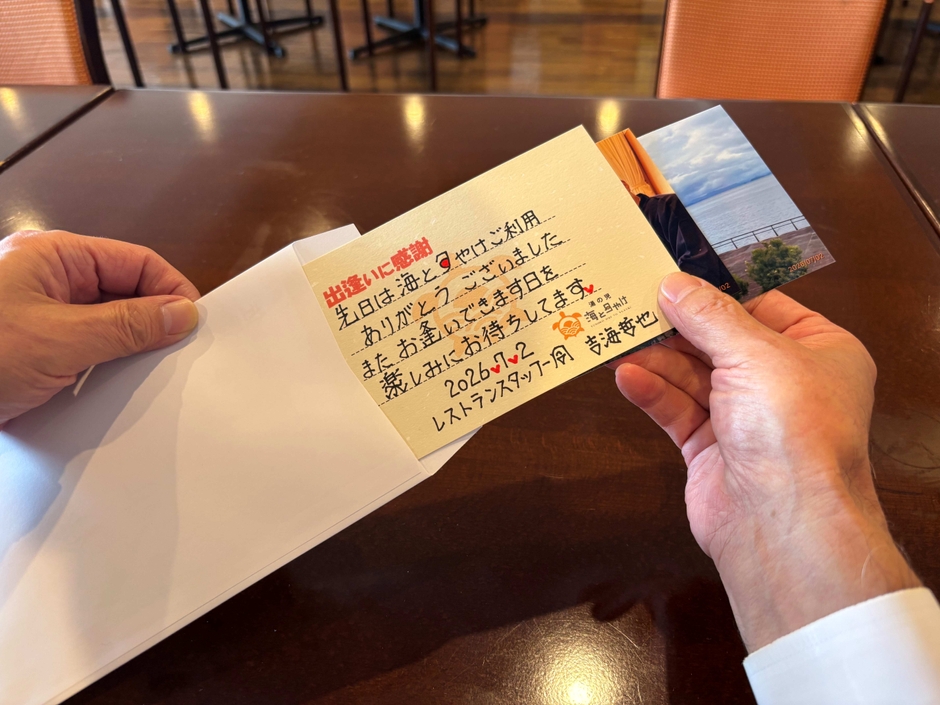 出逢いに感謝
先日は海と夕やけご利用
ありがとうございました
またお逢いできます日を
楽しみにお待ちしてます
2026.7.2
レストランスタッフ一同 吉海哲也
湯の児
海と夕やけ
2026/07/02
02